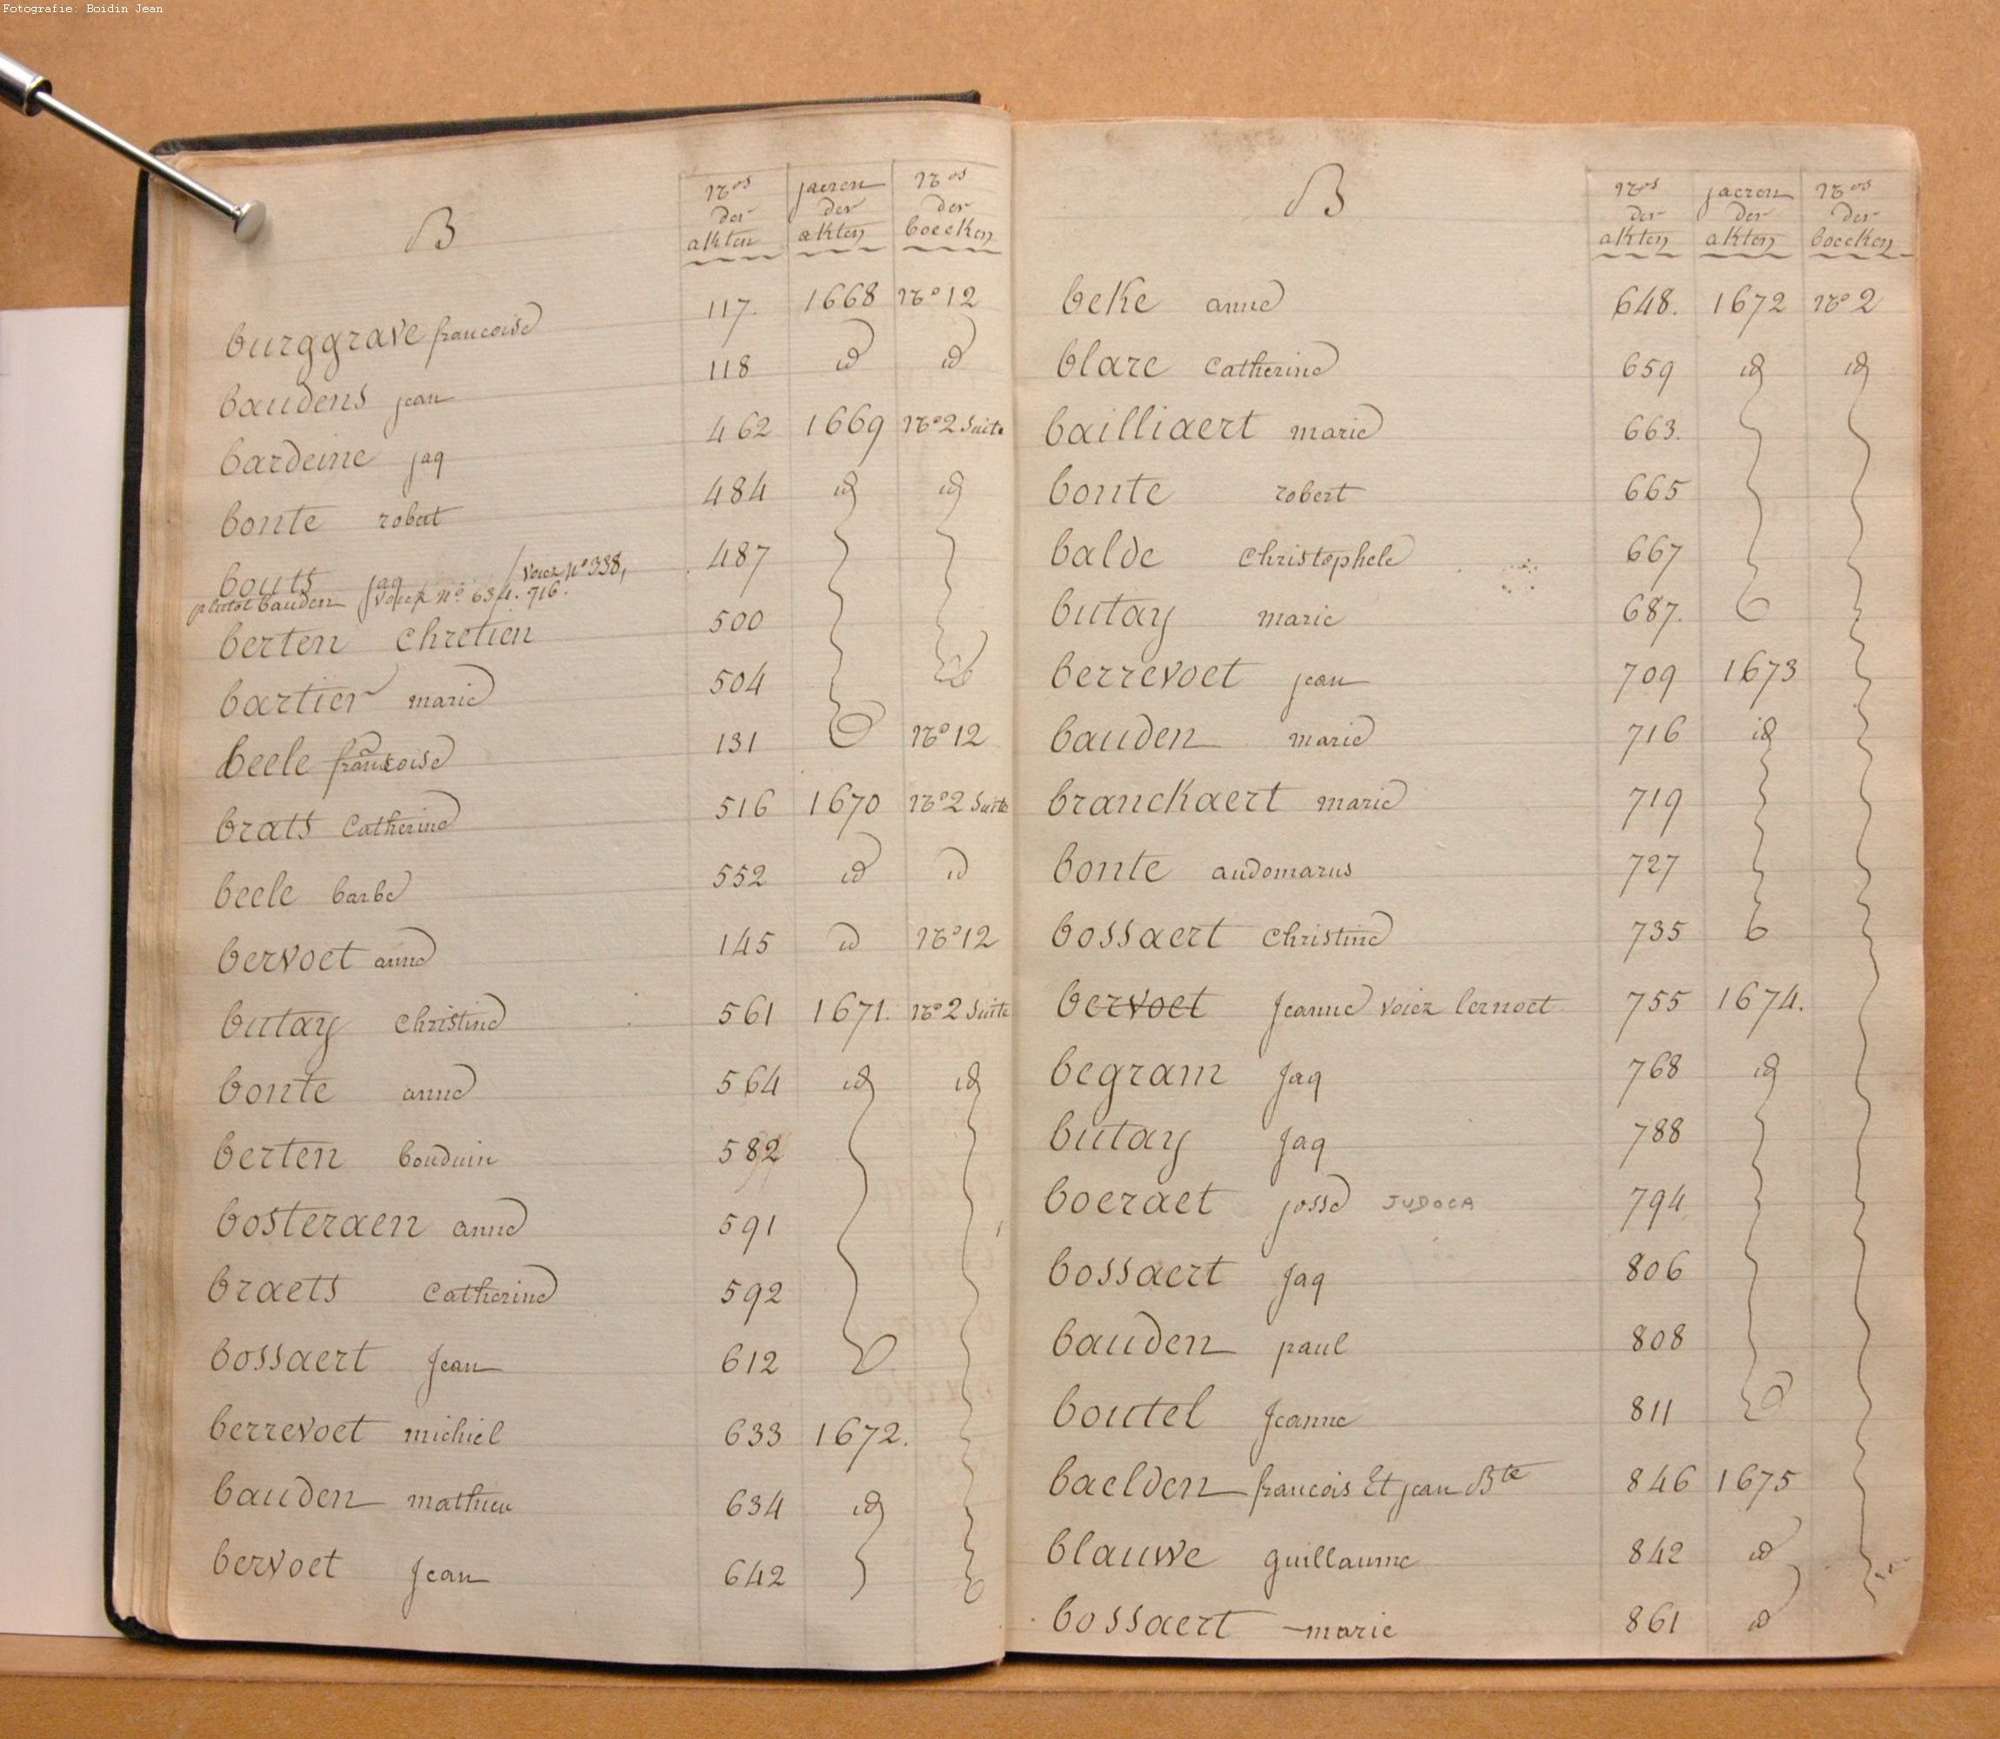 Fotografie: Boidin Jean
B
Nos der akten
jaeren der akten
Nos der boecken
burggrave francoise 117. 1668 No 12
baudens jean 118 id id
bardeine jaq 462 1669 No 2 Suite
bonte robert 484 id id
bouts jaq / voiez no 338, 487
plutot bauden voiez no 634. 716.
berten chretien 500
bartier marie 504
beele francoise 131 No 12
brats Catherine 516 1670 No 2 Suite
beele barbe 552 id id
bervoet anne 145 id No 12
butay christine 561 1671. No 2 Suite
bonte anne 564 id id
berten bouduin 582
bosteraen anne 591
braets Catherine 592
bossaert Jean 612
berrevoet michiel 633 1672.
bauden mathieu 634 id
bervoet Jean 642
B
Nos der akten
jaeren der akten
Nos der boecken
beke anne 648. 1672 No 2
blare Catherine 659 id id
bailliaert marie 663.
bonte robert 665
balde Christophele 667
butay marie 687.
berrevoet jean 709 1673
bauden marie 716 id
branckaert marie 719
bonte audomarus 727
bossaert Christine 735
bervoet Jeanne voiez lernoet 755 1674.
begram Jaq 768 id
butay Jaq 788
boeraet josse JUDOCA 794
bossaert Jaq 806
bauden paul 808
boutel Jeanne 811
baelden francois Et jean Bte 846 1675
blauwe guillaume 842 id
bossaert marie 861 id